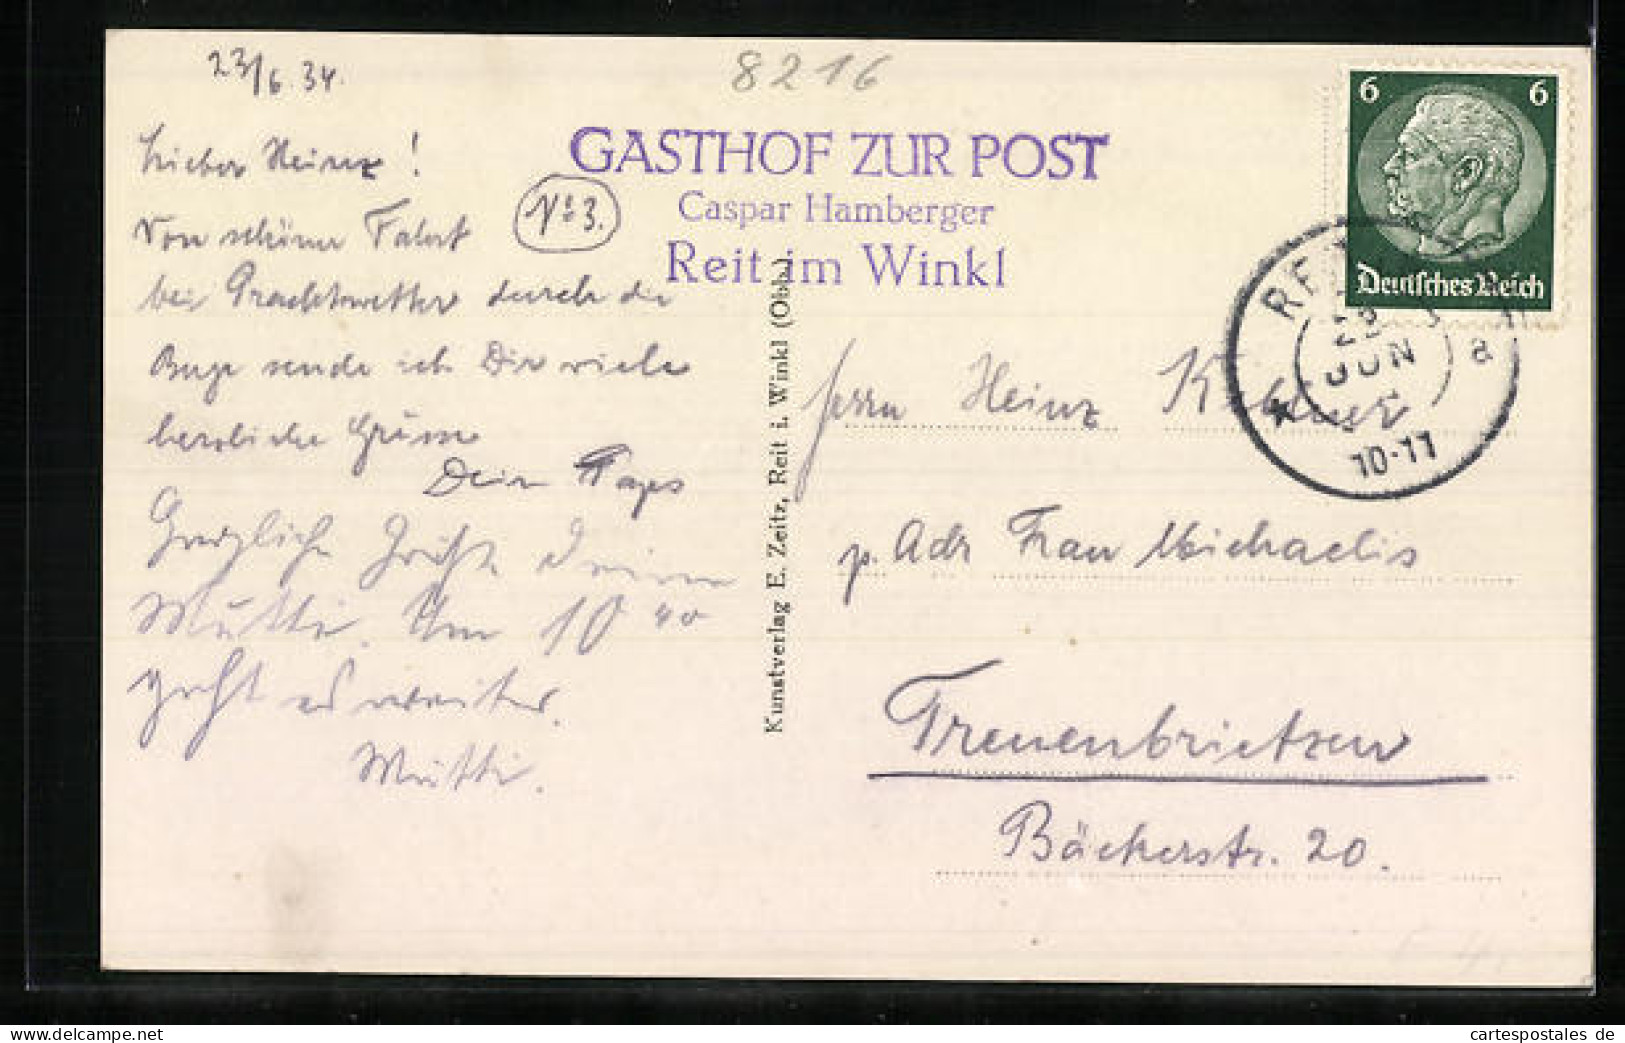 23/6.34.
8216
GASTHOF ZUR POST
Caspar Hamberger
Reit im Winkl
Nº 3.
Lieber Heinz!
Von schöner Fahrt
bei Prachtwetter durch die
Berge sende ich Dir viele
herzliche Grüsse
Dein Paps
Herzliche Grüße Deine
Mutti. Um 10 40
geht es weiter.
Mutti.
Kunstverlag E. Zeitz, Reit i. Winkl (Obb.)
6 6
Deutsches Reich
JUN
a
10-11
Herrn Heinz
p. Adr Frau Michaelis
Treuenbrietzen
Bäckerstr. 20.
cartespostales de